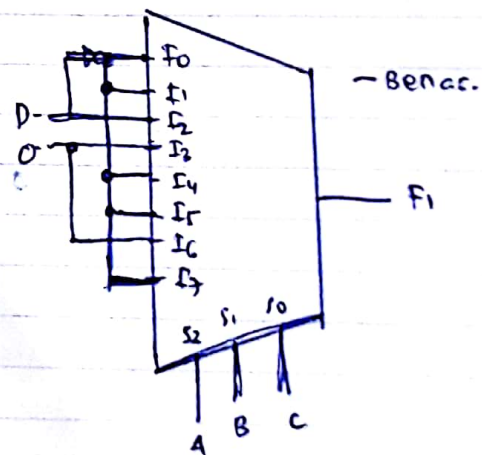 I0
I1
D
I2
0
I3
I4
I5
I6
I7
- Benar.
F1
S2 S1 S0
A B C